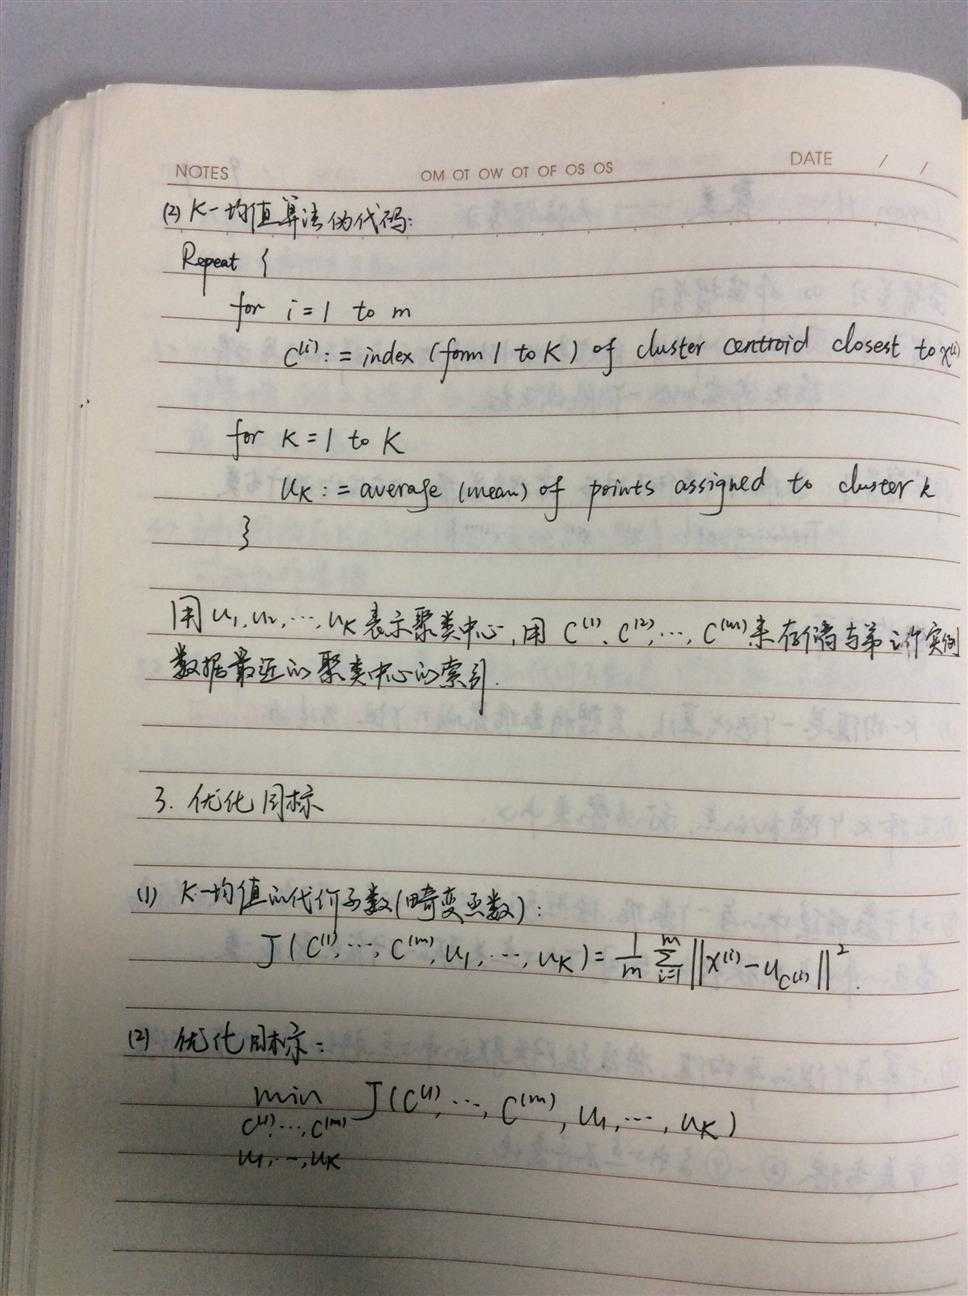 NOTES OM OT OW OT OF OS OS DATE / /
(2) K-均值算法伪代码:
Repeat {
for i=1 to m
C⁽ⁱ⁾ := index (form 1 to K) of cluster centroid closest to x⁽ⁱ⁾
for K=1 to K
uK := average (mean) of points assigned to cluster k
}
用 u₁, u₂, ⋯, uK 表示聚类中心, 用 C⁽¹⁾, C⁽²⁾, ⋯, C⁽ᵐ⁾来存储与第i个实例
数据最近的聚类中心的索引.
3. 优化目标
(1) K-均值的代价函数(畸变函数):
J(C⁽¹⁾, ⋯, C⁽ᵐ⁾, u₁, ⋯, uK) = 1/m Σᵢ₌₁ᵐ ||x⁽ⁱ⁾ - u_C⁽ⁱ⁾||².
(2) 优化目标:
min J(C⁽¹⁾, ⋯, C⁽ᵐ⁾, u₁, ⋯, uK)
C⁽¹⁾, ⋯, C⁽ᵐ⁾
u₁, ⋯, uK